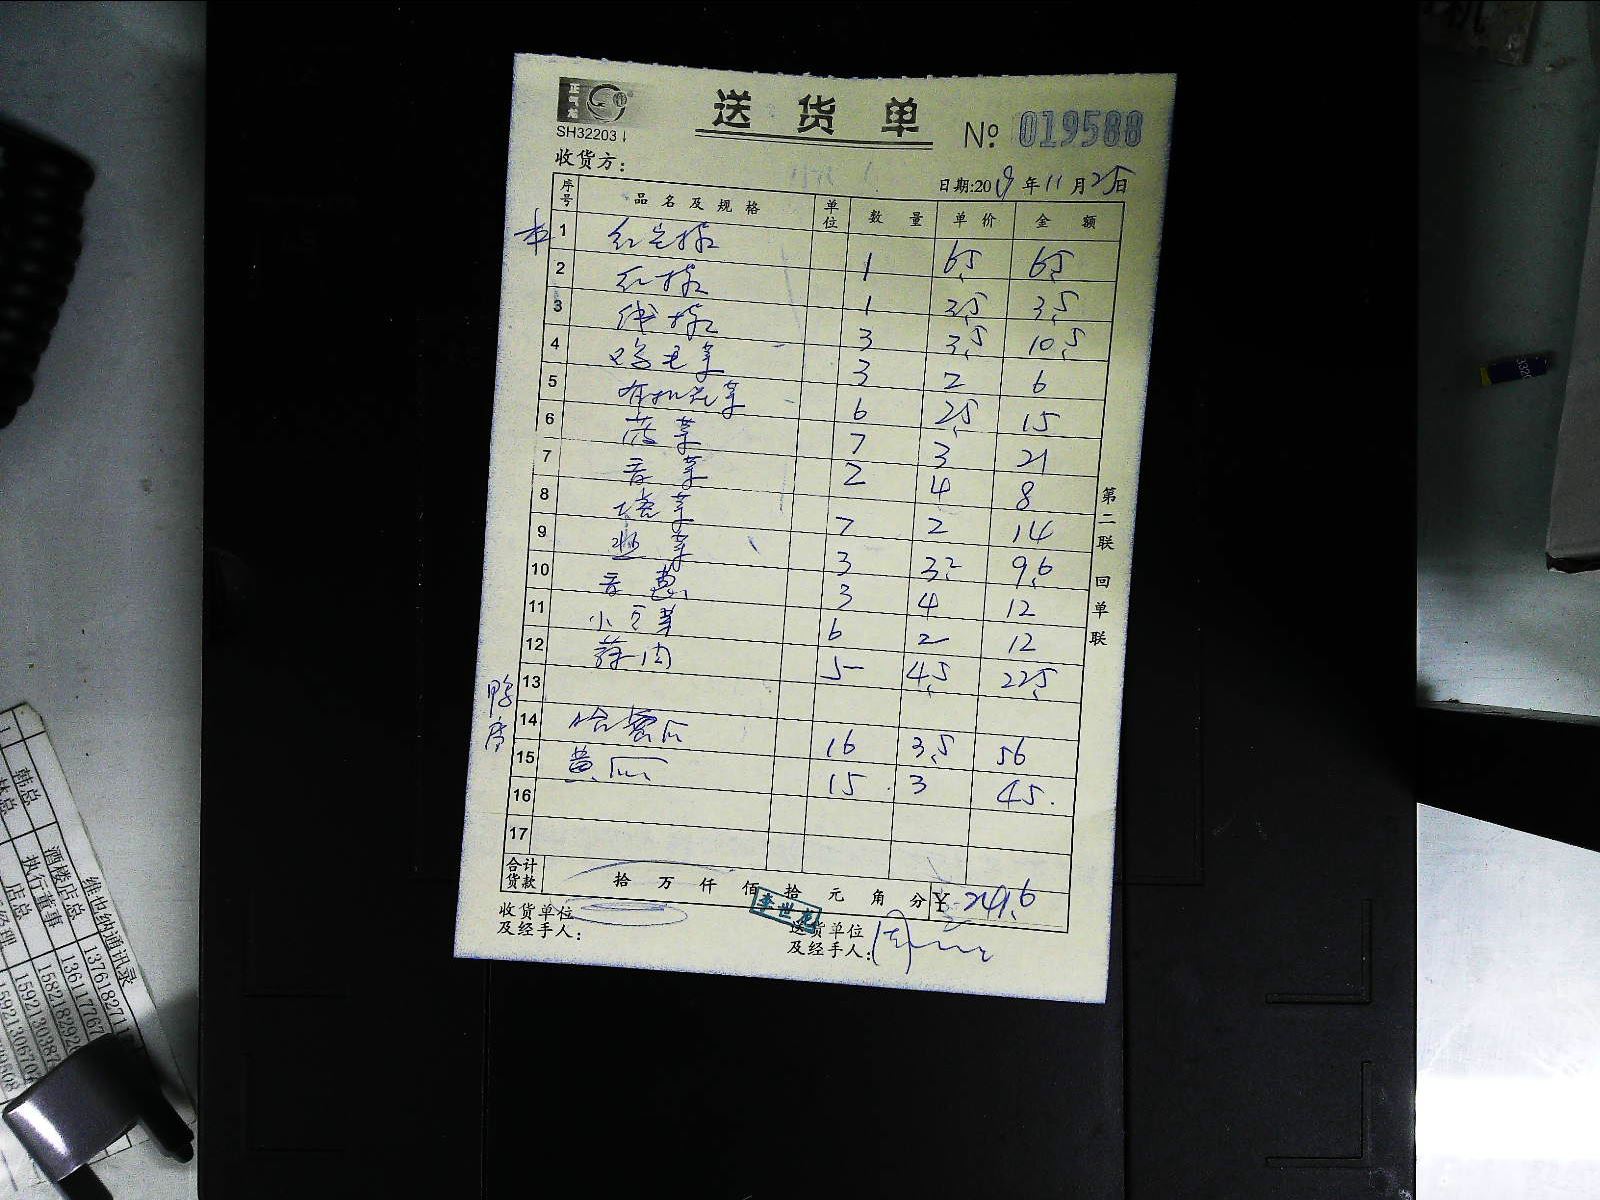 正气龙
SH32203
送 货 单
№ 019588
收货方:
日期:2019年11月25日
序号 品名及规格 单位 数量 单价 金额
本
1 红尖椒 1 6.5 6.5
2 红椒 1 3.5 3.5
3 线椒 3 3.5 10.5
4 鸡毛菜 3 2 6
5 有机花菜 6 2.5 15
6 菠菜 7 3 21
7 香菜 2 4 8
8 塔菜 7 2 14
9 韭菜 3 3.2 9.6
10 香葱 3 4 12
11 小豆芽 6 2 12
12 蒜肉 5 4.5 22.5
13
14 哈密瓜 16 3.5 56
15 黄瓜 15 3 45.
16
17
合计货款 拾 万 仟 佰 拾 元 角 分 ¥ 241.6
收货单位及经手人:
李世龙
送货单位及经手人:
第二联 回单联
韩总
林总
酒楼店总
执行董事
店总
维也纳通讯录